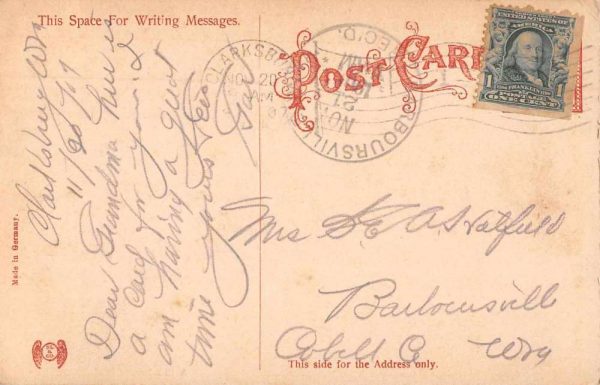 This Space For Writing Messages.
POST CARD
UNITED STATES OF AMERICA
FRANKLIN
1 1
ONE CENT
CLARKSBURG
NOV 20
AM
BARBOURSVILLE
NOV
21
AM
REC'D.
Clarksburg Wva
11/20/07
Dear Grandma here is
a card for you. I
am having a great
time yours
Mrs A Hatfield
Barboursville
Cabell Co Wva
Made in Germany.
This side for the Address only.